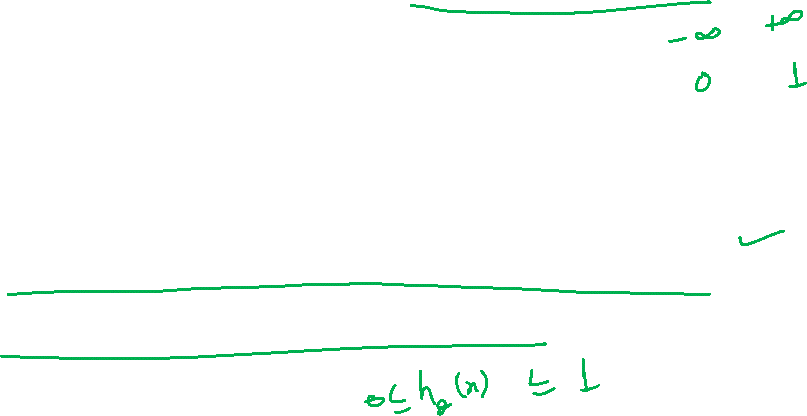 -∞ +∞
0 1
0 ≤ hθ(x) ≤ 1